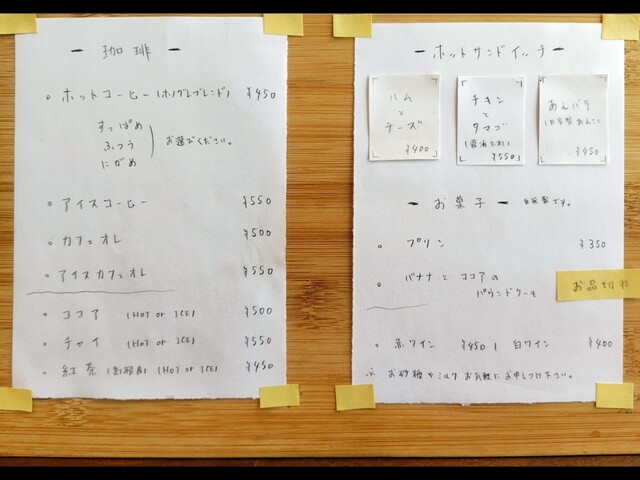 ー 珈琲 ー
。ホットコーヒー(ホノグレブレンド) ¥450
すっぱめ
ふつう
にがめ
お選びください。
。アイスコーヒー ¥550
。カフェオレ ¥500
。アイスカフェオレ ¥550
。ココア (HOT or ICE) ¥500
。チャイ (HOT or ICE) ¥550
。紅茶 (HOT or ICE) ¥450
ーホットサンドイッチー
ハム
と
チーズ
¥400
チキン
と
タマゴ
(醤油たれ)
¥550
あんバタ
(自家製あんこ)
¥450
ー お菓子 ー 自家製です。
。プリン ¥350
。バナナとココアの
パウンドケーキ
お品切れ
。赤ワイン ¥450 / 白ワイン ¥400
お砂糖やミルクお気軽にお申しつけ下さい。